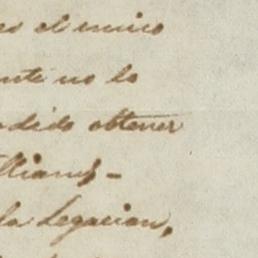 es el unico
nte no lo
odido obtener
lliams -
la Legacion,